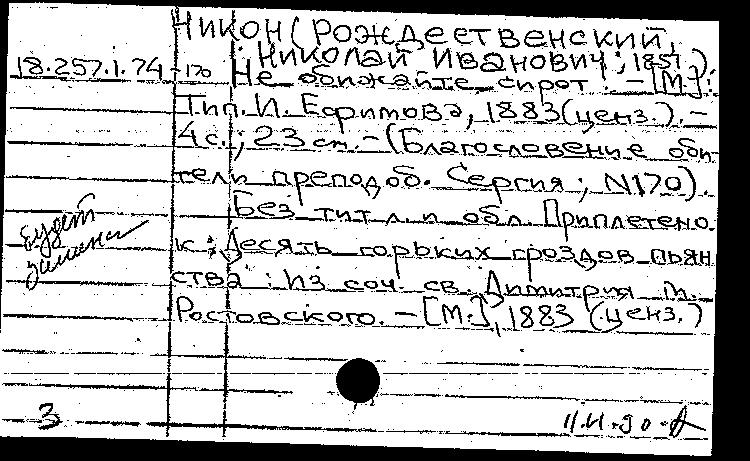 Никон (Рождественский,
Николай Иванович; 1851).
18.257.1.74-170 Не обижайте сирот! - [М.]:
Тип. И. Ефимова, 1883 (ценз.). -
4 с.; 23 см. - (Благословение оби-
тели преподоб. Сергия; N170).
Без тит. л. и обл. Приплетено
к: Десять горьких гроздов пьян
ства: Из соч. св. Димитрия м.
Ростовского. - [М.], 1883 (ценз.)
Будет
3